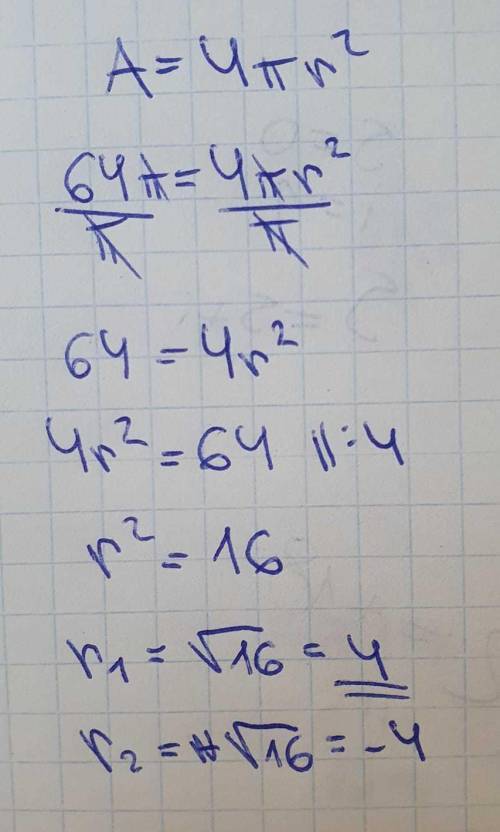 A = 4πr²
64π = 4πr²
π π
64 = 4r²
4r² = 64 ||:4
r² = 16
r₁ = √16 = 4
r₂ = -√16 = -4